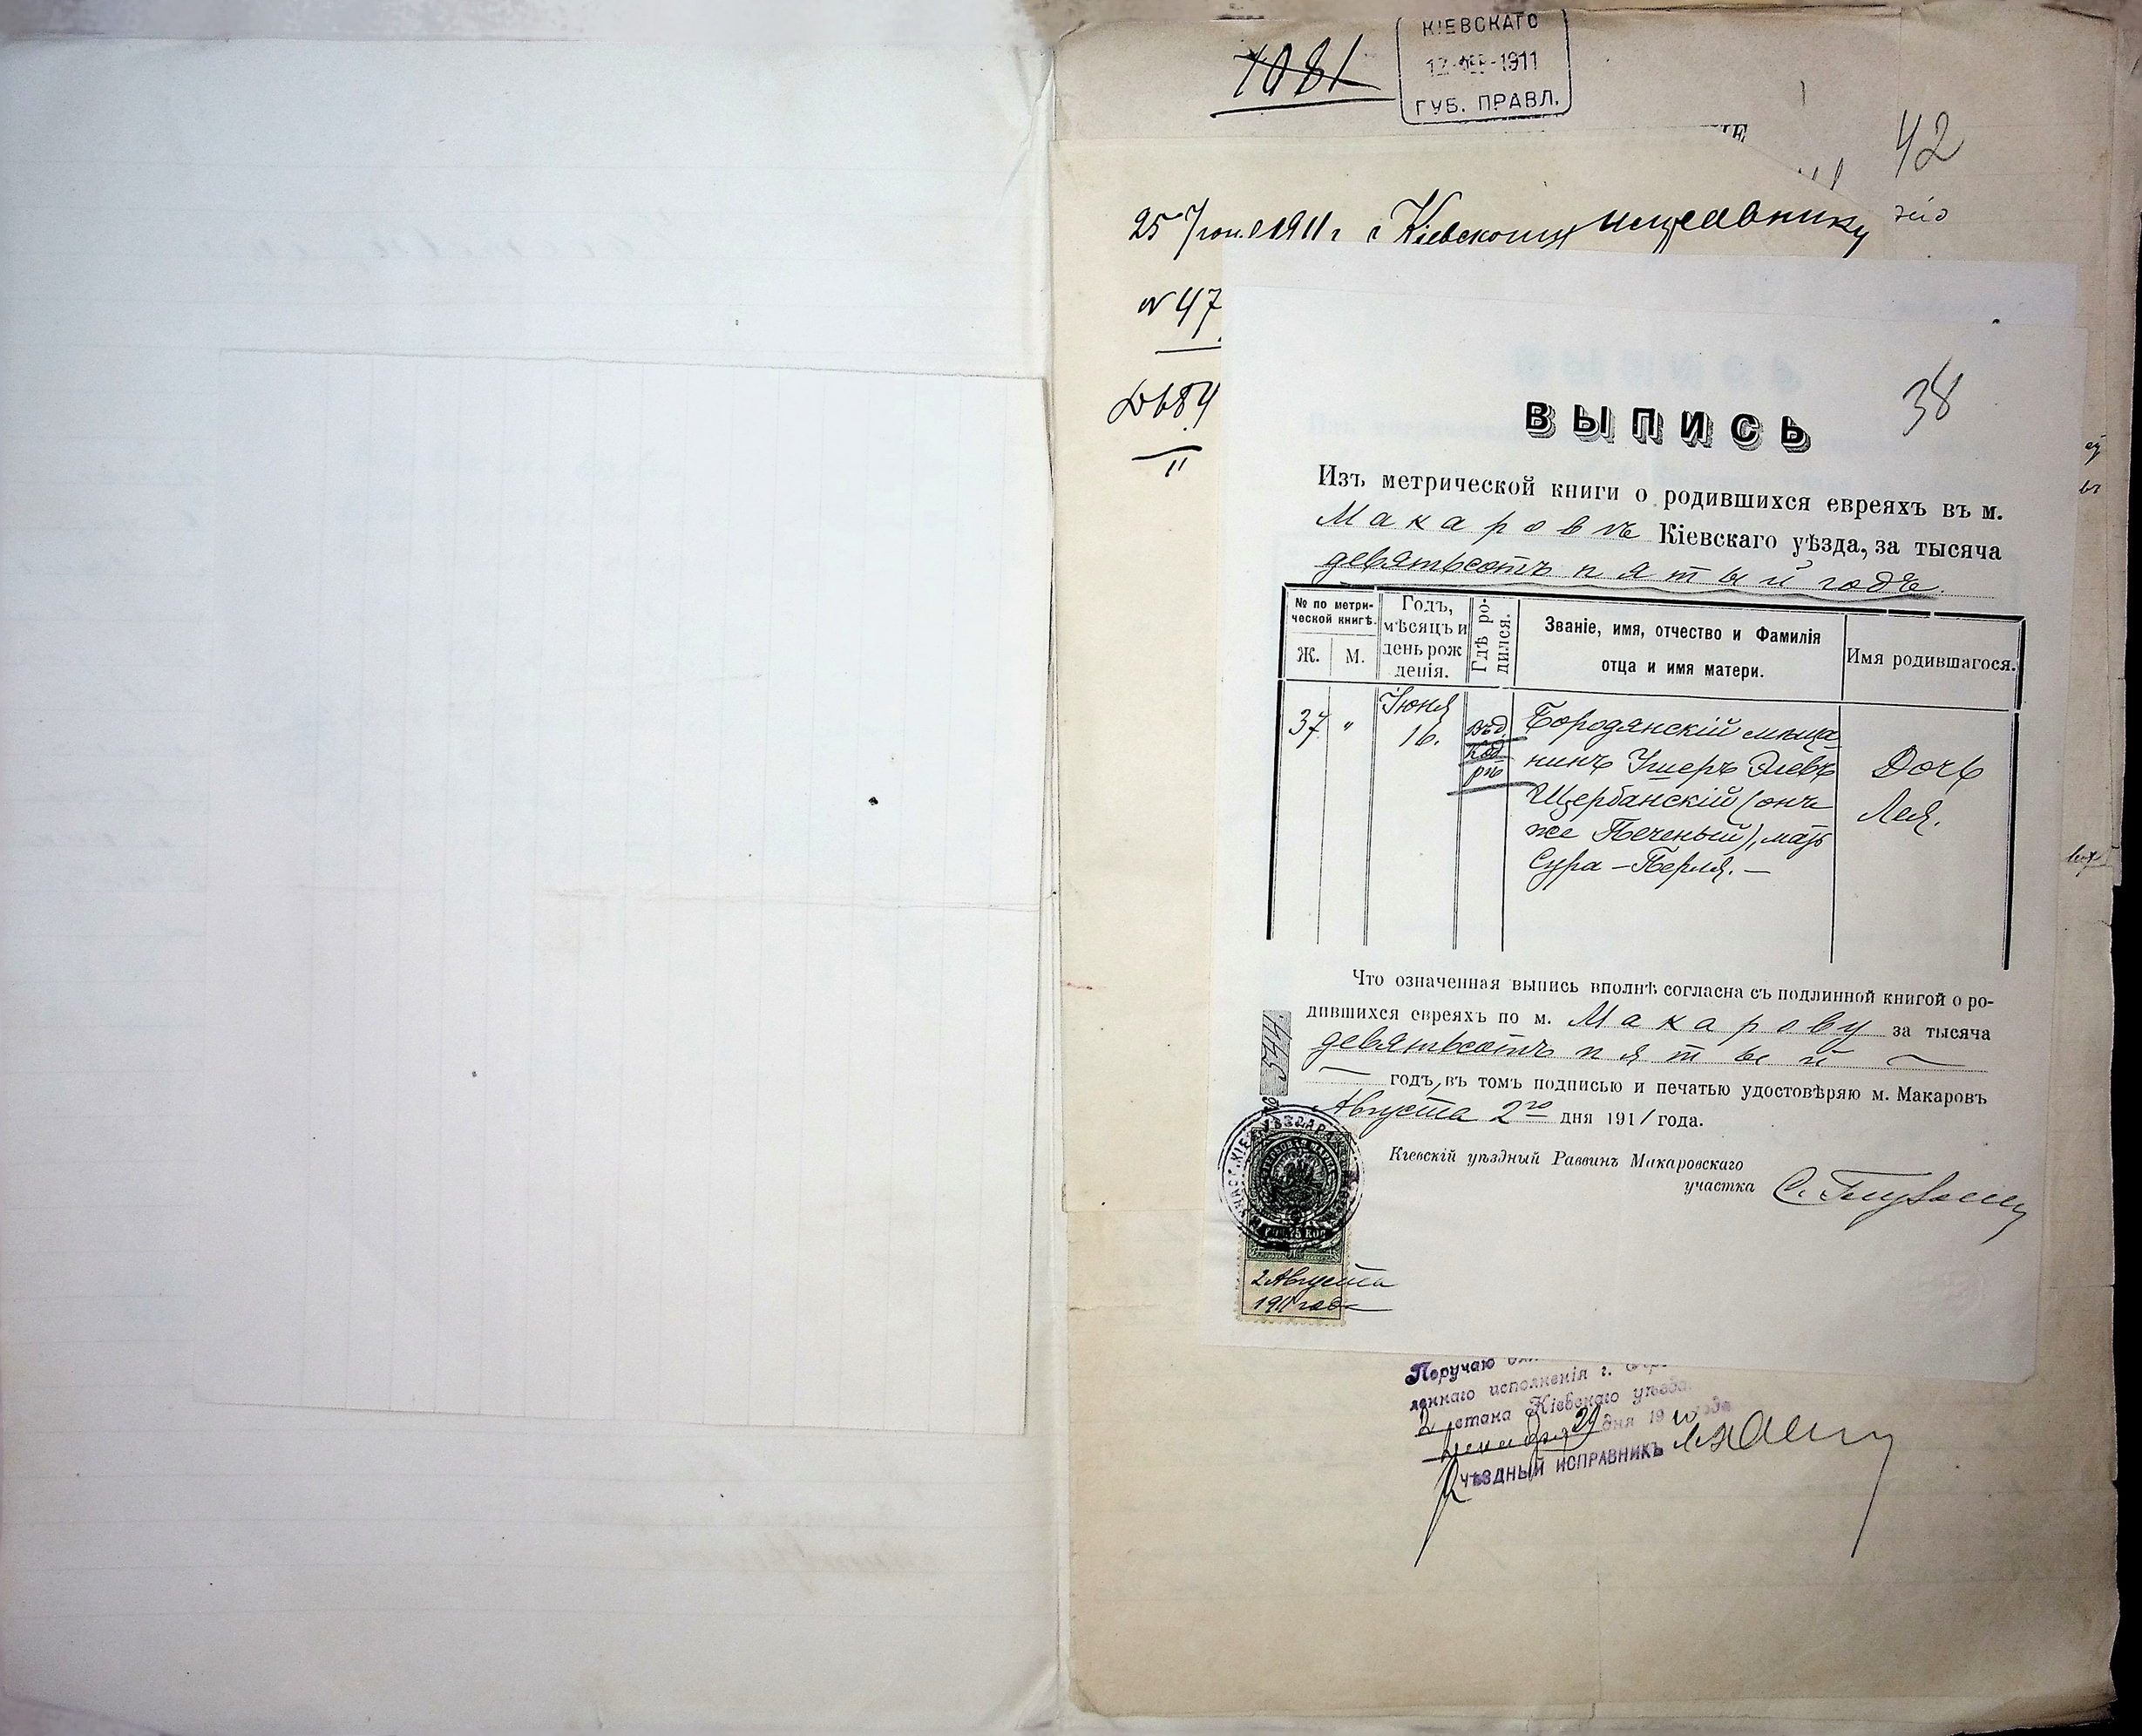 1081
КІЕВСКАГО
12 ФЕВ 1911
ГУБ. ПРАВЛ.
42
25 Іюня 1911 г. Кіевскому исправнику
ІЕ
N 47
38
ВЫПИСЬ
Изъ метрической книги о родившихся евреяхъ въ м.
Макаровѣ Кіевскаго уѣзда, за тысяча
девятьсотъ пятый годъ.
№ по метри-
ческой книгѣ.
Ж. М.
Годъ,
мѣсяцъ и
день рож
денія.
Гдѣ ро-
дился.
Званіе, имя, отчество и Фамилія
отца и имя матери.
Имя родившагося.
37 "
Іюня
16.
Въ д.
Код
рѣ
Бородянскій мѣща-
нинъ Ушеръ Элевъ
Щербанскій (онъ
же Печеный), мать
Сура-Перля. —
Дочь
Лея.
Что означенная выпись вполнѣ согласна съ подлинной книгой о ро-
дившихся евреяхъ по м. Макарову за тысяча
девятьсотъ пятый —
— годъ, въ томъ подписью и печатью удостовѣряю м. Макаровъ
Августа 2го дня 1911 года.
544
Кіевскій уѣздный Раввинъ Макаровскаго
участка
75 КОП
2 Августа
1911 года
Поручаю
леннаго исполненія г.
2 стана Кіевскаго уѣзда.
29 дня 1910 года
УѢЗДНЫЙ ИСПРАВНИКЪ